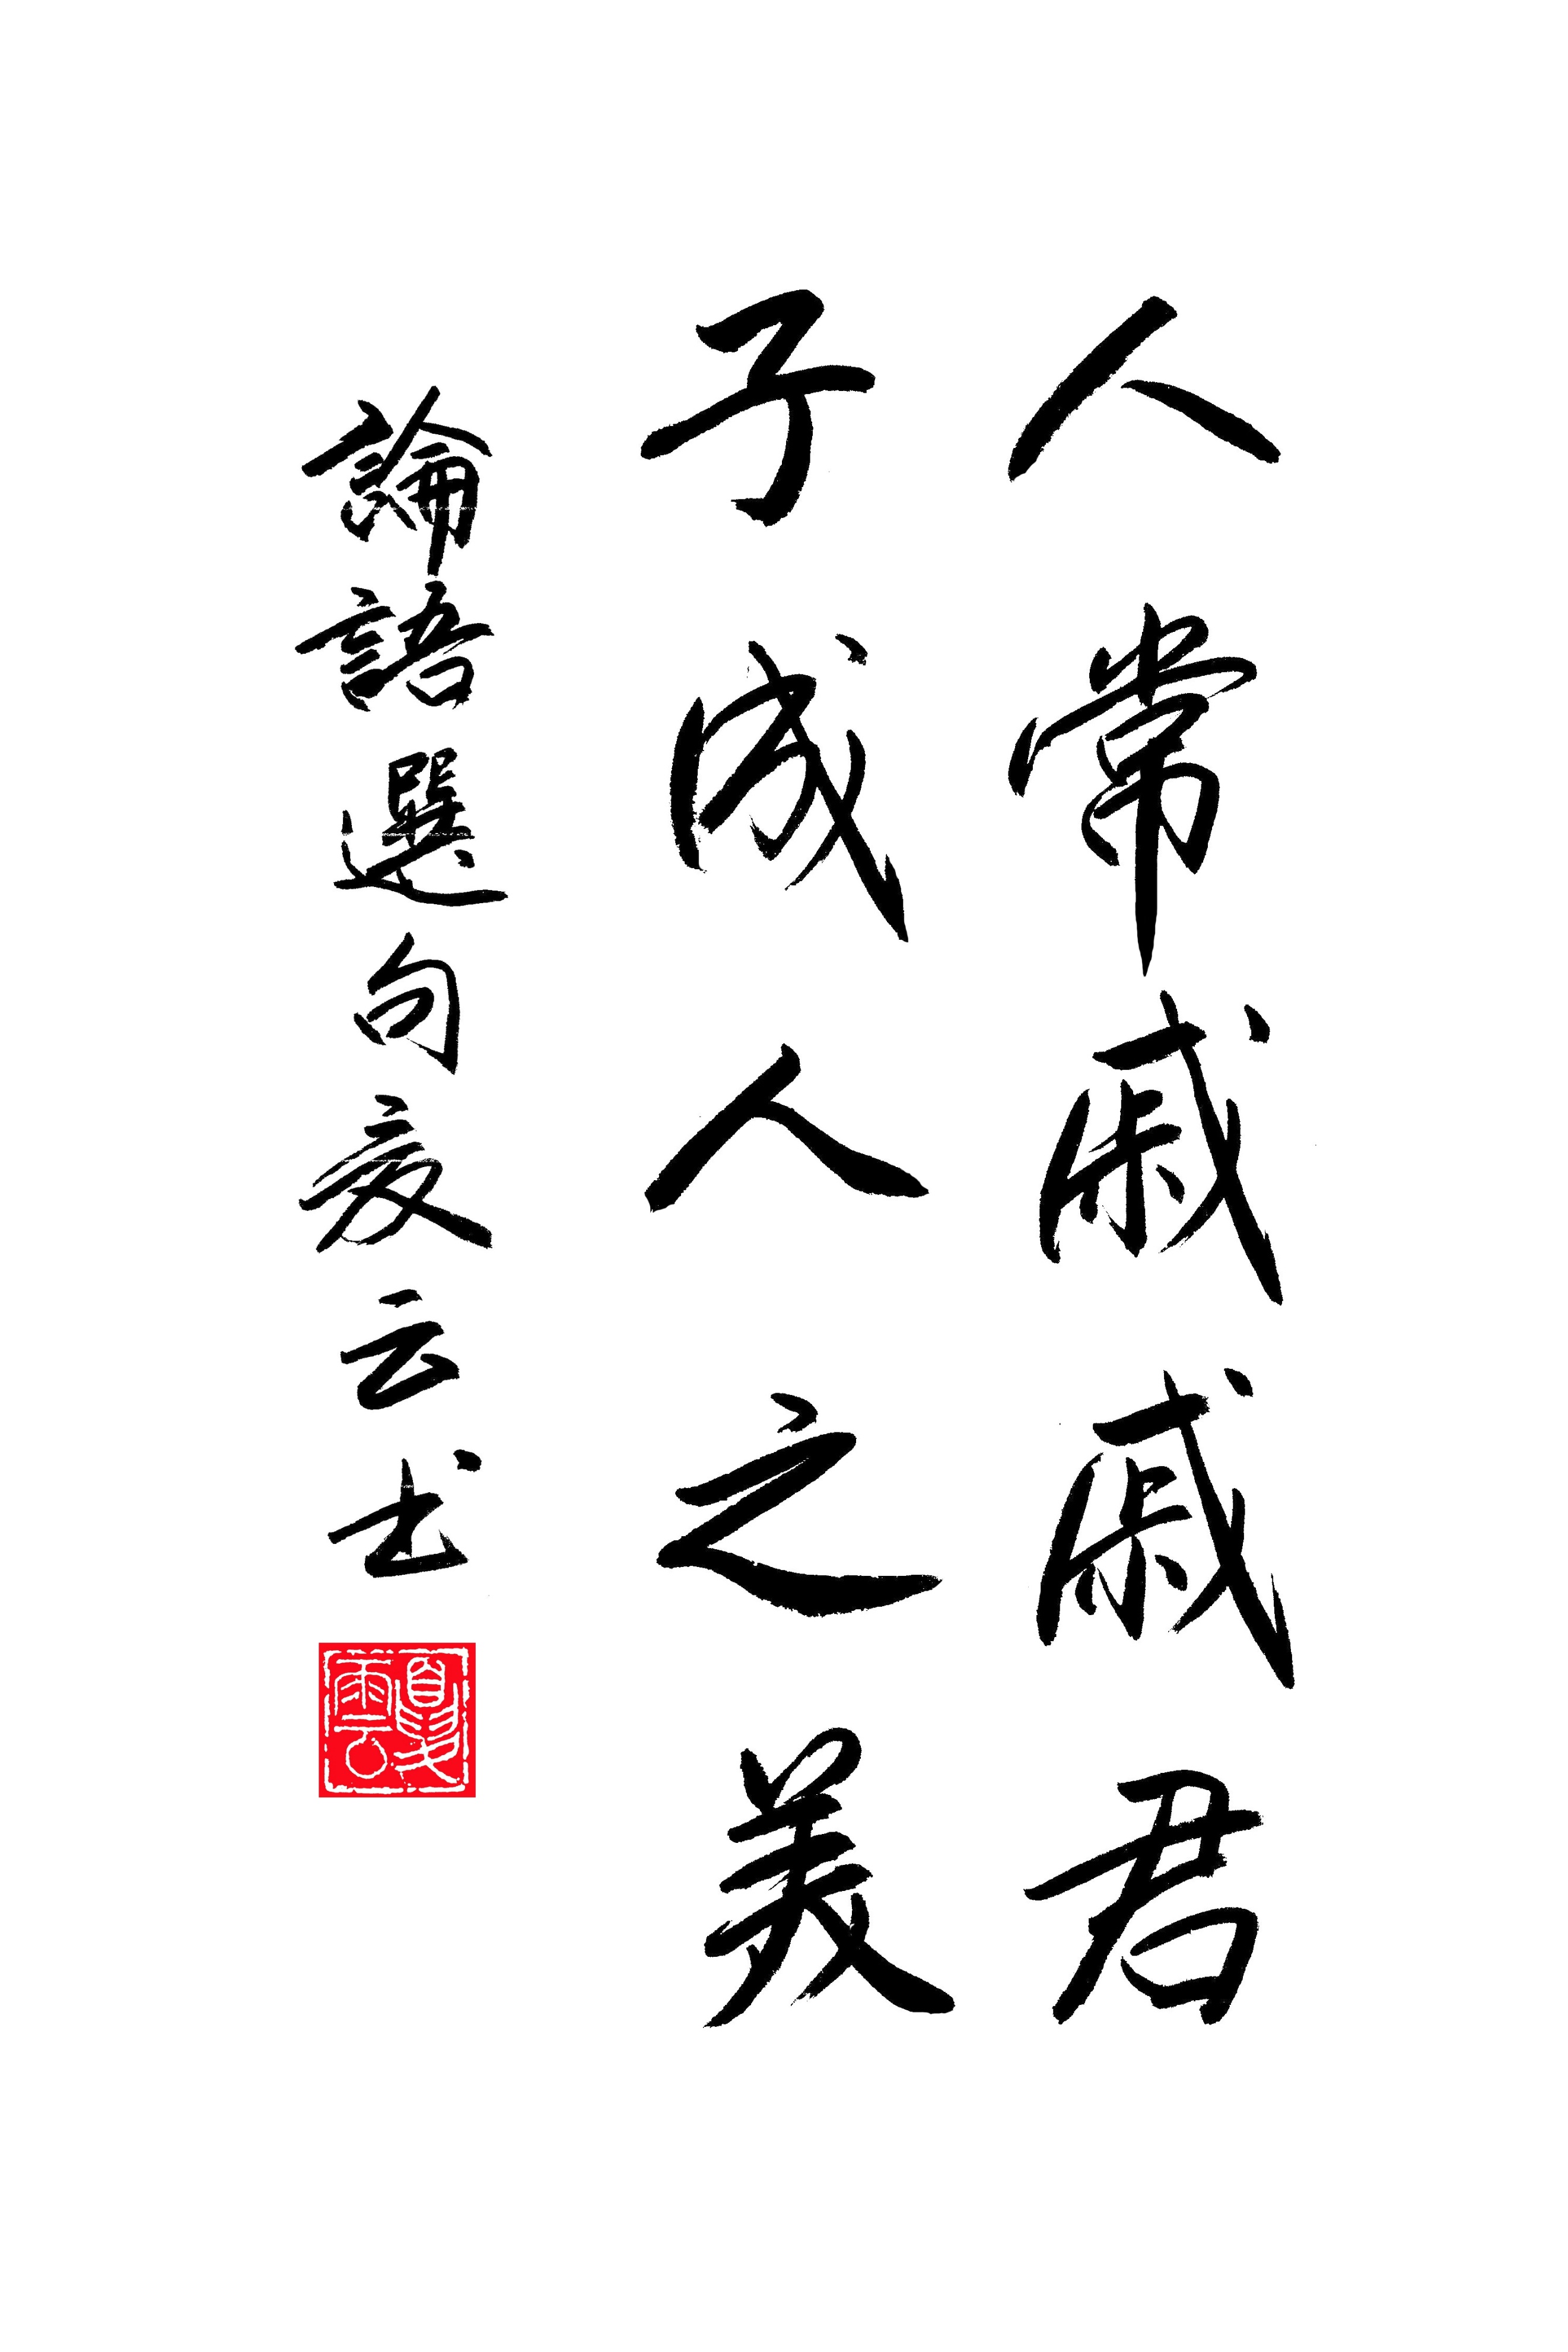 人常戚戚君
子成人之美
論語選句夏云书
夏雲